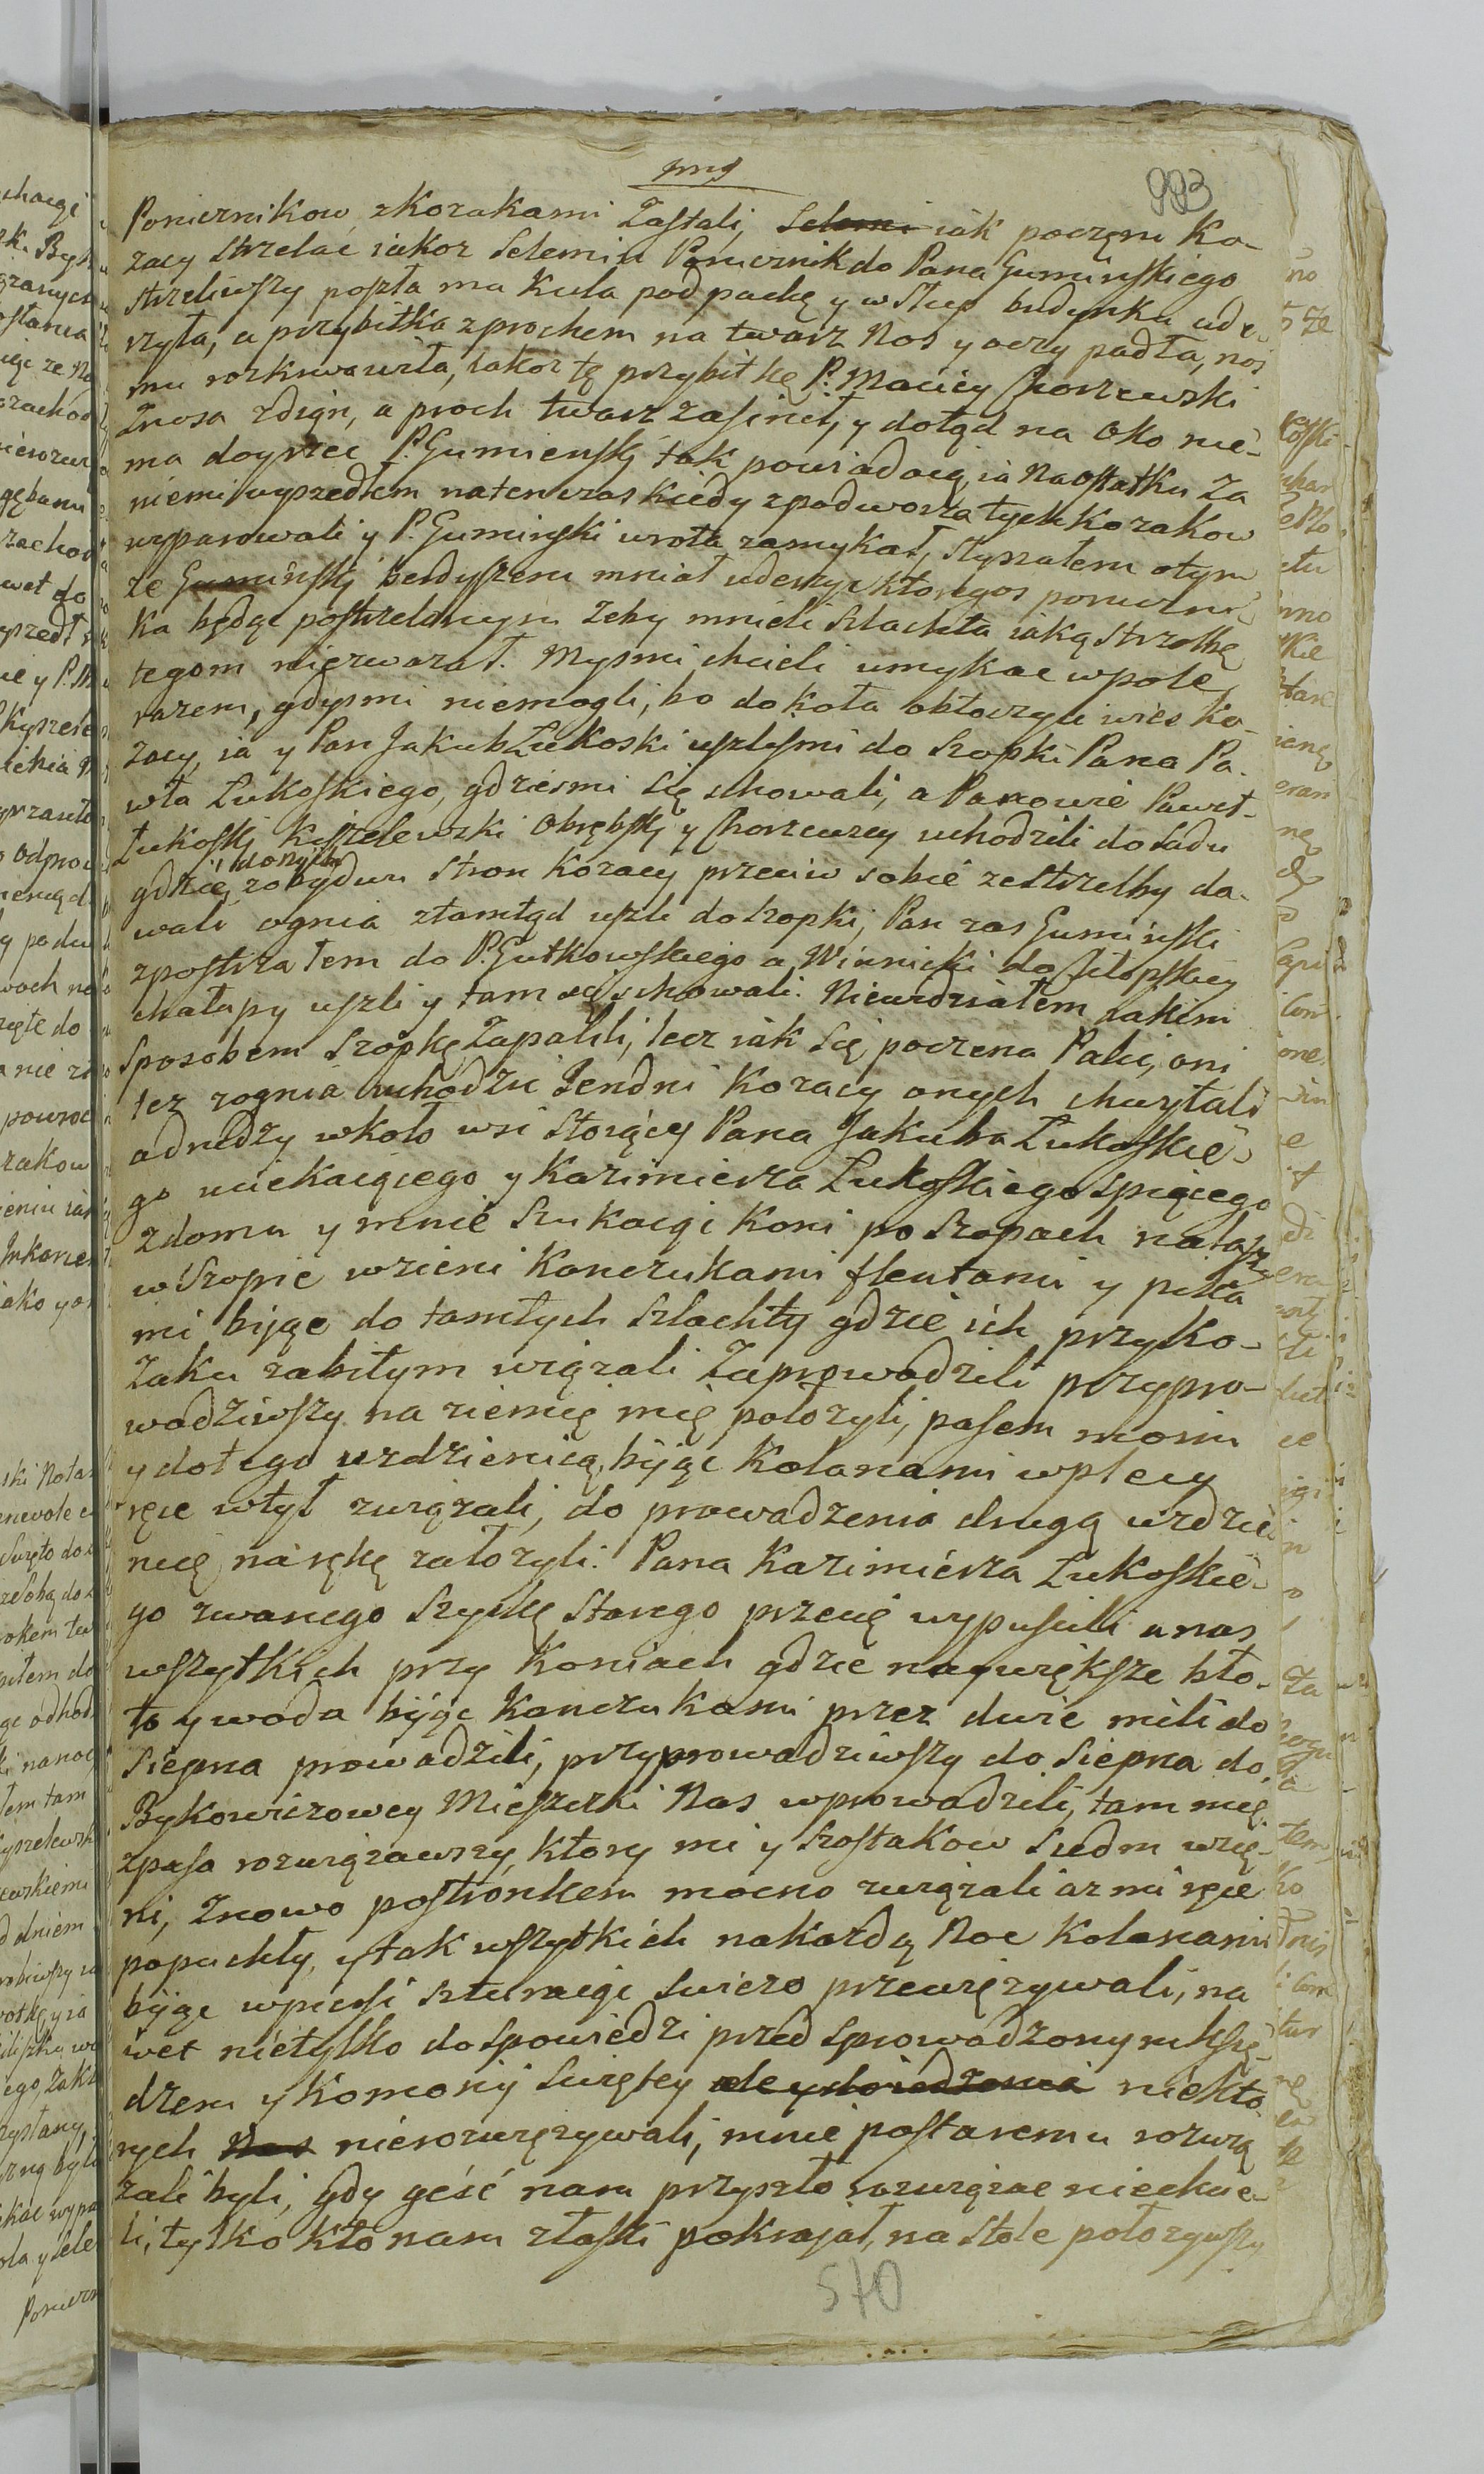 993
Porucznikow, zkozakami Zastali, Selemi iak poczęni Ko-
zacy strzelać iakoz Selemin Porucznik do Pana Guminskiego
strzeliwszy poszła mu Kula pod pachę y w słup budynku ude-
rzyła, a przybitka zprochem na twarz Nos y oczy padła, nos
mu rozkrwawiła, iakoz tę przybitkę P. Maciey Chorzewski
Znosa zdign, a proch twarz zasinił, y dotąd na Oko nie-
ma doyrzec P. Gumienskj tak powiadaią, ia Naostatku Za
niemi wyszedłem natenczas kiedy zpodworza tych Kozakow
wyparowali y P. Guminski wrota zamykał, słyszałem otym
ze Guminskj berdyszem mniał uderzyc ktoregos poruczni-
ka będąc postrzelonym Zeby mnieli Szlachta iaką strzelbę
tegom niezwazał. Mysmi chcieli umykac wpole
razem, gdysmi niemogli, bo dokoła obtoczyli wies Ko-
zacy, ia y Pan Jakub Łukoski uszlismi do Szopki Pana Pa-
wła Łukoskiego, gdziesmi Się schowali, a Panowie Paweł-
Łukoskj Kyszelewski Obrębskj y Chorzewscy uchodzili do Sadu
gdzie donych zobydwu Stron Kozacy przeciw sobie zestrzelby da-
wali ognia ztamtąd uszli do szopki, Pan zas Guminski
zpostrzałem do P. Gutkowskiego a Winnicki do chłopskiey
chałupy uszli y tam się schowali. Niewidziałem iakim
Sposobem Szopkę Zapalili, lecz iak Się poczena Palic, oni
tez zognia uchodzic Jendni Kozacy onych chwytali
adrudzy wkoło wsi Stoiący Pana Jakuba Łukoskie-
go uciekaiącego y Kazimierza Łukoskiego spiącego
zdomu y mnie Szukaiąc Koni po Szopach nalazszy
w Szopie wzieni Kanczukami flentami y pika
mi bijąc do tamtych Szlachty gdzie ich przy Ko-
Zaku zabitym wiązali Zaprowadzili przypro-
wadziwszy na ziemię mię położyli, pasem moim
y do tego uzdzienicą, bijąc Kolanami wplecy
ręce wtył związali, do prowadzenia drugą uzdzie
nicę na rękę założyli. Pana Kazimierza Łukoskie-
go zwanego Szyskę Starego przecię wypuscili anas
wszytkich przy Koniach gdzie naywiększe bło-
to y woda bijąc Kanczukami przez dwie mili do
Siepna prowadzili, przyprowadziwszy do Siepna do
Bykowiczowey Mieszczki Nas wprowadzili, tam mię
zpasa rozwiązawszy, ktory mi y Szostakow Siedm wzię-
ni, Znowo postronkem mocno związali az mi ręce
popuchły, y tak wszytkich nakozdą Noc Kolanami
bijąc wpiersi Szturaiąc Swiezo przewięzywali, na
wet nietylko do Spowiedzi przed Sprowadzonym Księ-
dzem y Komonij Swiętey niekto-
rych Nas nierozwięzywali, mnie postaremu rozwią
zali byli, gdy geść nam przyszło rozwięzac niechcie-
li, tylko kto nam złaski pokrajał, na Stole położywszy
570